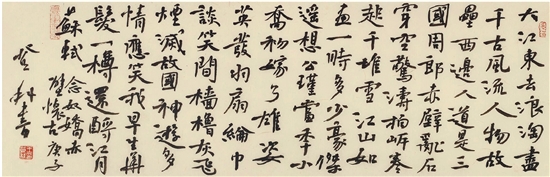 大江東去浪淘盡
千古風流人物故
壘西邊人道是三
國周郎赤壁亂石
穿空驚濤拍岸卷
起千堆雪江山如
畫一時多少豪傑
遥想公瑾當年小
喬初嫁了雄姿
英發羽扇綸巾
談笑間檣櫓灰飛
煙滅故國神遊多
情應笑我早生華
髮一樽還酹江月
蘇軾念奴嬌赤
壁懷古庚子
登科書